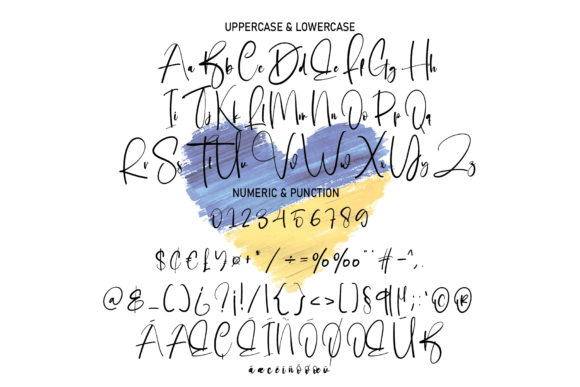 UPPERCASE & LOWERCASE
Aa Bb Cc Dd Ee Ff Gg Hh
Ii Jj Kk Ll Mm Nn Oo Pp Qq
Rr Ss Tt Uu Vv Ww Xx Yy Zz
NUMERIC & PUNCTION
0123456789
$₵€£¥¤+*/÷=%‰¨¨#-^,.
@&_()¿?¡!/|\{}<>[]§¶µ:;'©®
ÁÆÇÉÍÑÓØŒÚß
áæçéíñóøœú